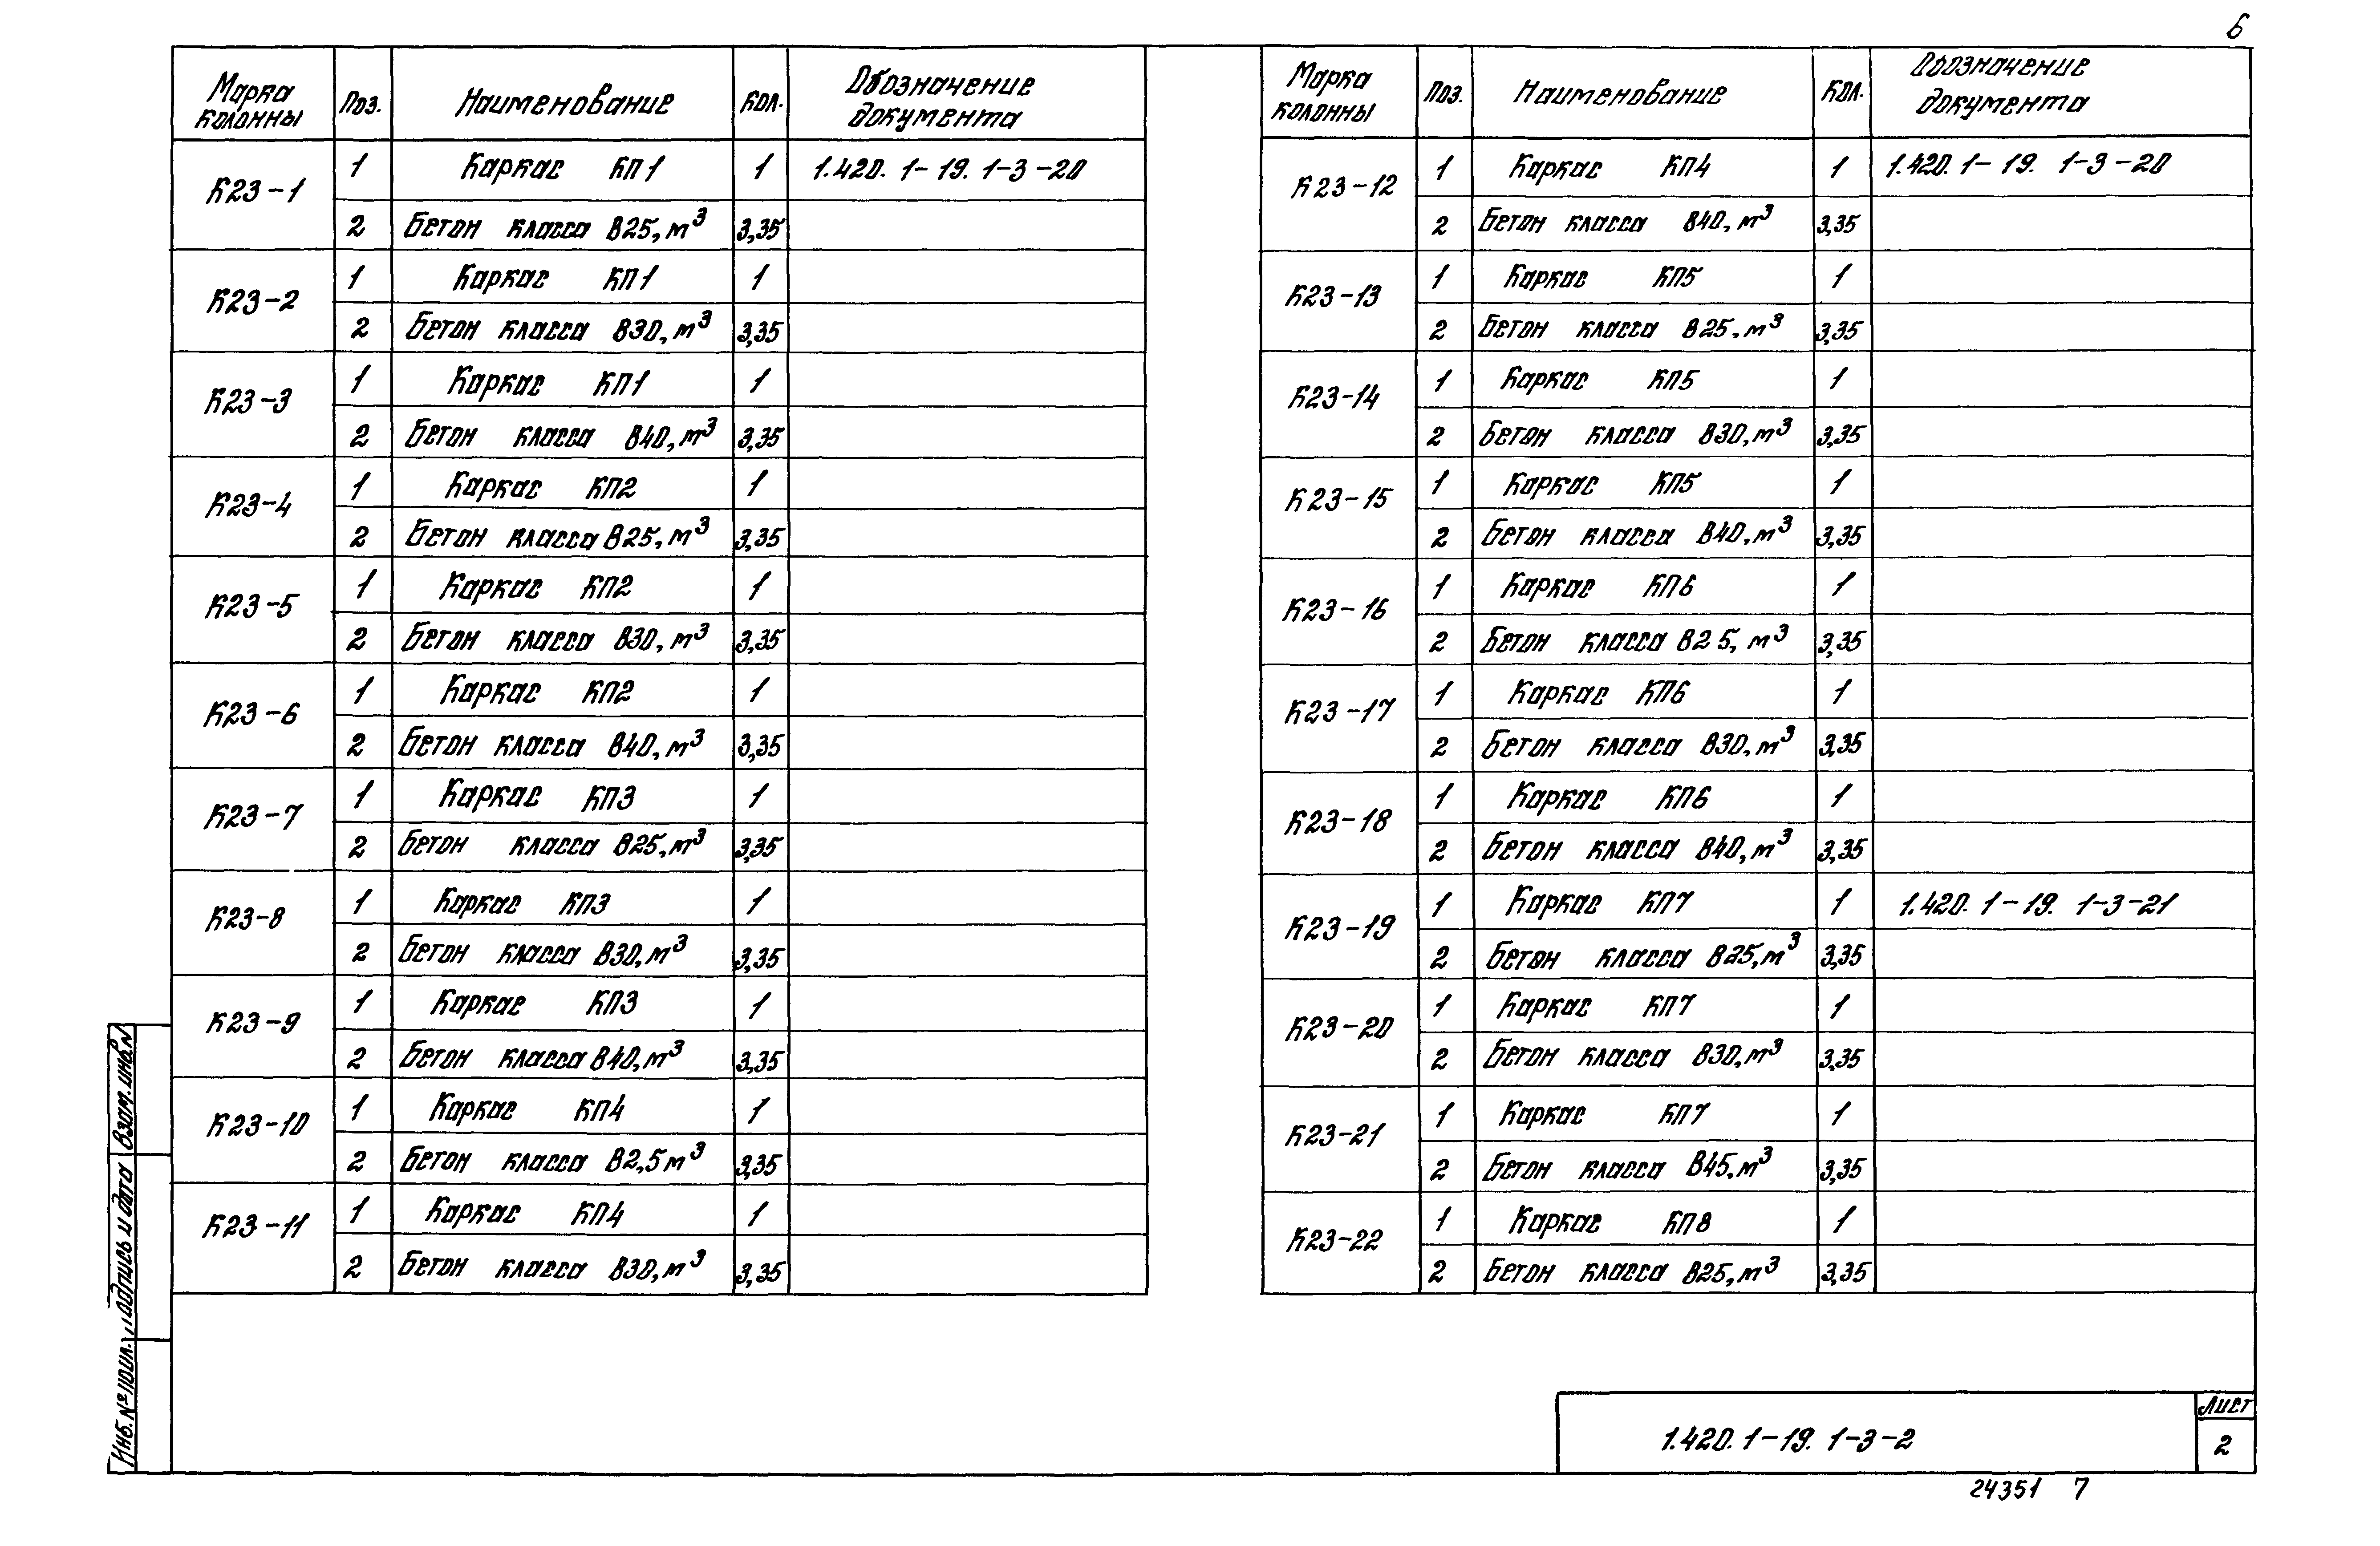 6
Марка колонны Поз. Наименование Кол. Обозначение документа
К23-1 1 Каркас КП1 1 1.420.1-19.1-3-20
2 Бетон класса В25, м³ 3,35
К23-2 1 Каркас КП1 1
2 Бетон класса В30, м³ 3,35
К23-3 1 Каркас КП1 1
2 Бетон класса В40, м³ 3,35
К23-4 1 Каркас КП2 1
2 Бетон класса В25, м³ 3,35
К23-5 1 Каркас КП2 1
2 Бетон класса В30, м³ 3,35
К23-6 1 Каркас КП2 1
2 Бетон класса В40, м³ 3,35
К23-7 1 Каркас КП3 1
2 Бетон класса В25, м³ 3,35
К23-8 1 Каркас КП3 1
2 Бетон класса В30, м³ 3,35
К23-9 1 Каркас КП3 1
2 Бетон класса В40, м³ 3,35
К23-10 1 Каркас КП4 1
2 Бетон класса В2,5 м³ 3,35
К23-11 1 Каркас КП4 1
2 Бетон класса В30, м³ 3,35
Марка колонны Поз. Наименование Кол. Обозначение документа
К23-12 1 Каркас КП4 1 1.420.1-19. 1-3-20
2 Бетон класса В40, м³ 3,35
К23-13 1 Каркас КП5 1
2 Бетон класса В25, м³ 3,35
К23-14 1 Каркас КП5 1
2 Бетон класса В30, м³ 3,35
К23-15 1 Каркас КП5 1
2 Бетон класса В40, м³ 3,35
К23-16 1 Каркас КП6 1
2 Бетон класса В25, м³ 3,35
К23-17 1 Каркас КП6 1
2 Бетон класса В30, м³ 3,35
К23-18 1 Каркас КП6 1
2 Бетон класса В40, м³ 3,35
К23-19 1 Каркас КП7 1 1.420.1-19. 1-3-21
2 Бетон класса В25, м³ 3,35
К23-20 1 Каркас КП7 1
2 Бетон класса В30, м³ 3,35
К23-21 1 Каркас КП7 1
2 Бетон класса В45, м³ 3,35
К23-22 1 Каркас КП8 1
2 Бетон класса В25, м³ 3,35
Инв. № подл. Подпись и дата Взам. инв. №
1.420.1-19. 1-3-2
Лист
2
24351 7